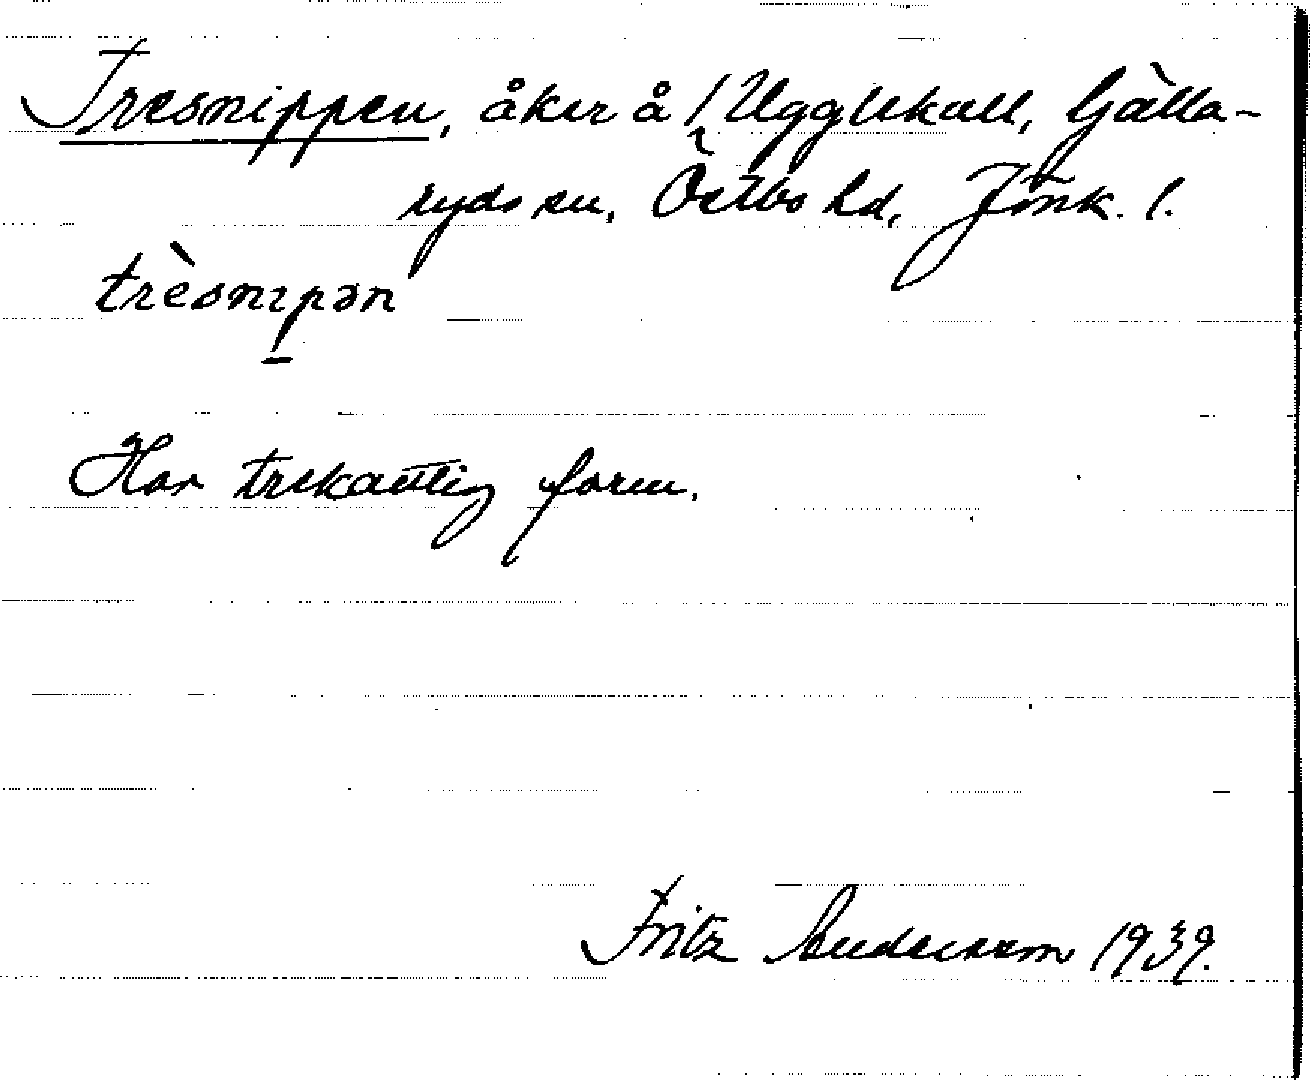 Tresnippen, åker å Ugglekull, Gälla-
ryds sn, Östbo hd, Jönk. l.
trèsnɪpən
Har trekantig form.
Fritz Andersson 1939.